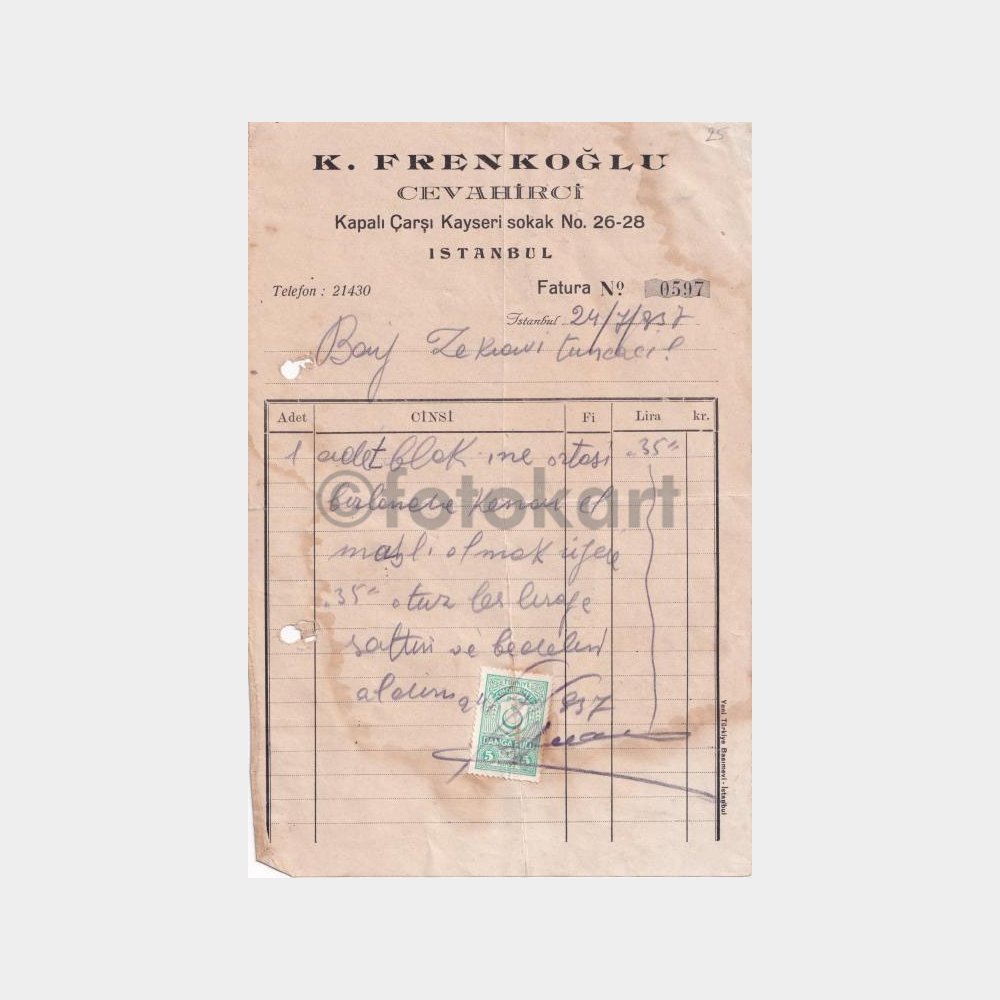 25
K. FRENKOĞLU
CEVAHİRCİ
Kapalı Çarşı Kayseri sokak No. 26-28
ISTANBUL
Telefon : 21430
Fatura No 0597
İstanbul 24/7/937
Bay Zekravi
Adet CİNSİ Fi Lira kr.
1 adet blok ortası "35"
©fotokart
olmak üzere
"35" otuz beş liraya
sattım ve bedelini
aldım 24/7/937
DAMGA PULU
5 5
Yeni Türkiye Basımevi - İstanbul